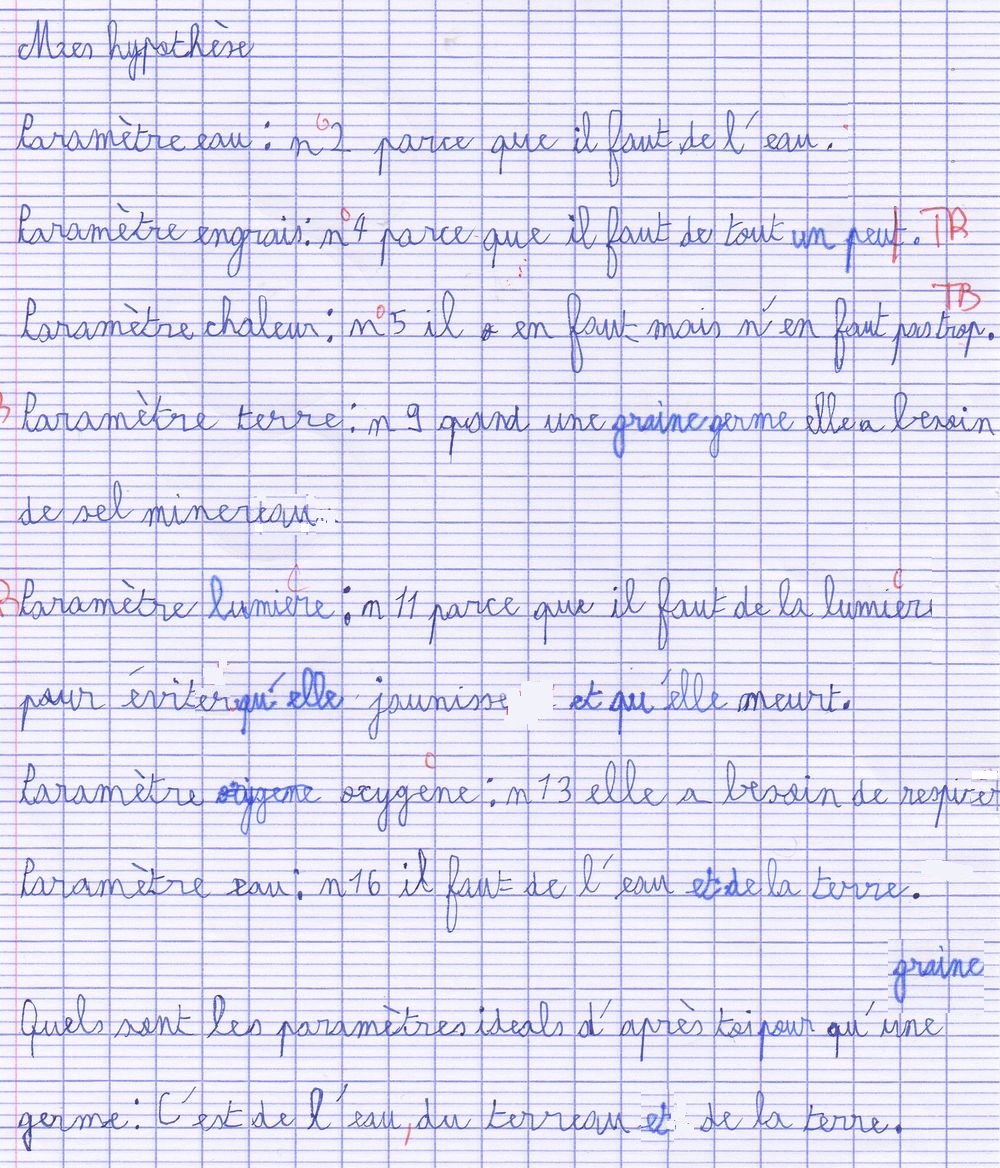 Mes hypothèse
Paramètre eau : n°2 parce que il faut de l'eau.
Paramètre engrais : n°4 parce que il faut de tout un peut. TB
TB
Paramètre chaleur : n°5 il en faut mais n'en faut pas trop.
Paramètre terre : n 9 quand une graine germe elle a besoin
de sel minereau..
Paramètre lumière : n 11 parce que il faut de la lumière
pour éviter qu'elle jaunisse et qu'elle meurt.
Paramètre oxygène : n 13 elle a besoin de respirer
Paramètre eau : n 16 il faut de l'eau et de la terre.
graine
Quels sont les paramètres ideals d'après toi pour qu'une
germe : C'est de l'eau, du terreau et de la terre.